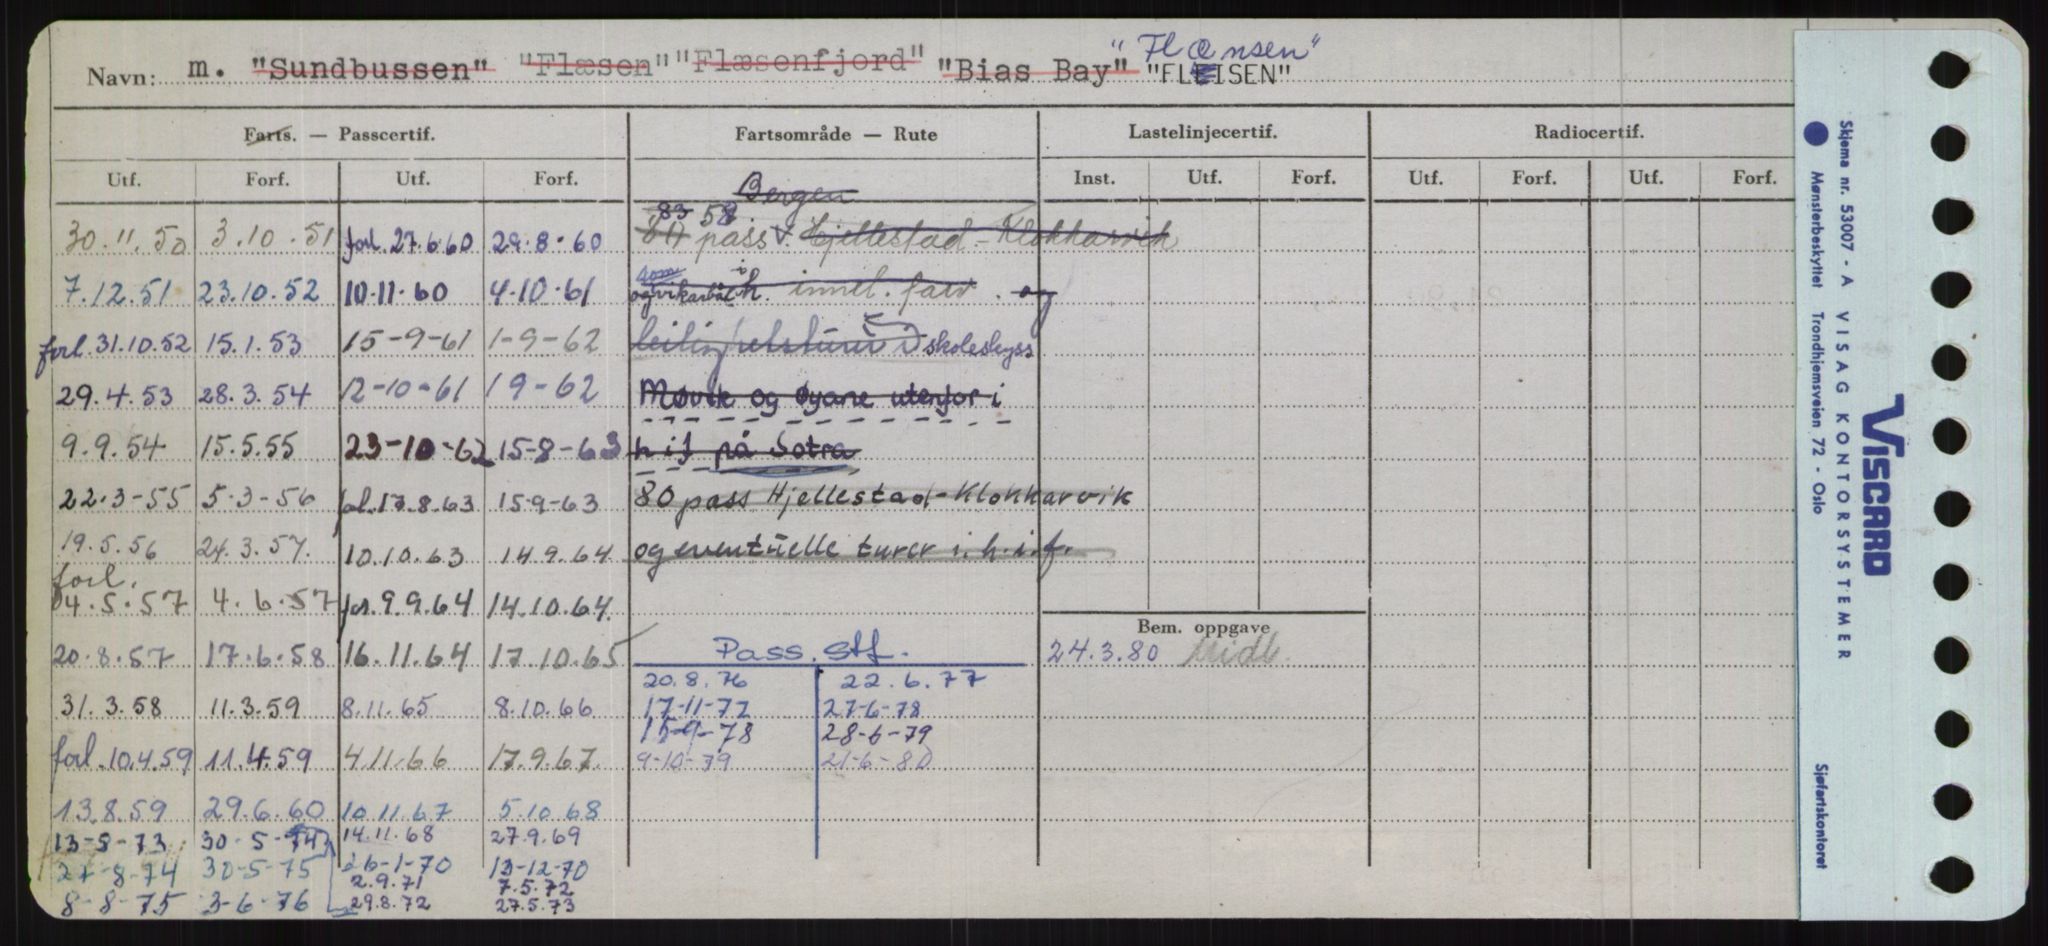 Navn: m. "Sundbussen" "Flæsen" "Flæsenfjord" "Bias Bay" "FLEISEN" "Flænsen"
Farts. — Passcertif. Fartsområde — Rute Lastelinjecertif. Radiocertif.
Utf. Forf. Utf. Forf. Inst. Utf. Forf. Utf. Forf. Utf. Forf.
Bergen
83 58
30.11.50 3.10.51 forl. 27.6.60 29.8.60 80 pass v. Hjellestad - Klokkarvik
som i
7.12.51 23.10.52 10.11.60 4.10.61 og h. innel. farv. og
forl. 31.10.52 15.1.53 15-9-61 1-9-62 i skoleskyss
29.4.53 28.3.54 12-10-61 19-62 Møvik og øyane utenfor i
9.9.54 15.5.55 23-10-62 15-8-63 h i f på Sotra
22.3-55 5.3-56 forl. 13.8.63 15-9-63 80 pass Hjellestad-Klokkarvik
19.5.56 24.3.57. 10.10.63 14.9.64 og eventuelle turer i. h. i. f.
forl.
04.5.57 4.6.57 for. 9.9.64 14.10.64
Bem. oppgave
20.8.57 17.6.58 16.11.64 17.10.65 Pass. stf. 24.3.80 Midl.
20.8.76 22.6.77
31.3.58 11.3.59 8.11.65 8.10.66 17-11-77 27-6-78
15-9-78 28-6-79
forl. 10.4.59 11.4.59 4.11.66 17.9.67 9-10-79 21-6-80
13.8.59 29.6.60 10.11.67 5.10.68
13-8-73 30-5-74 14.11.68 27.9.69
27-8-74 30-5-75 26-1-70 13-12-70
2.9.71 7.5.72
8-8-75 3-6-76 29.8.72 27.5.73
Skjema nr. 53007 - A VISAG KONTORSYSTEMER
Mønsterbeskyttet Trondhjemsveien 72 - Oslo
Sjøfartskontoret
VISCARD